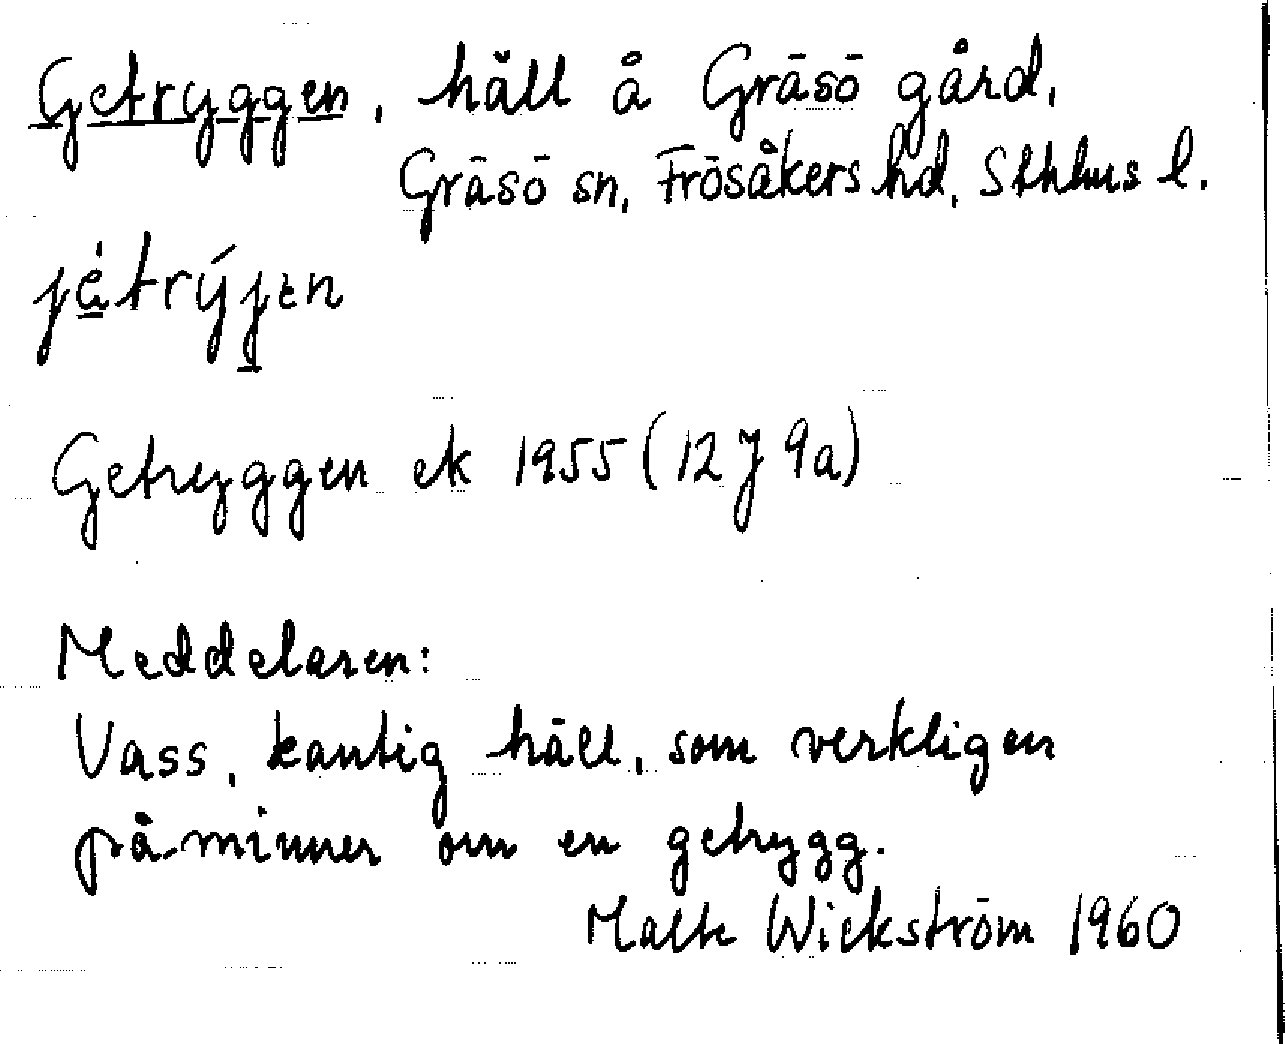 Getryggen, häll å Gräsö gård,
Gräsö sn, Frösåkers hd, Sthlms l.
jètrýjen
Getryggen ek 1955 (12 J 9a)
Meddelaren:
Vass, kantig häll, som verkligen
påminner om en getrygg.
Malte Wickström 1960